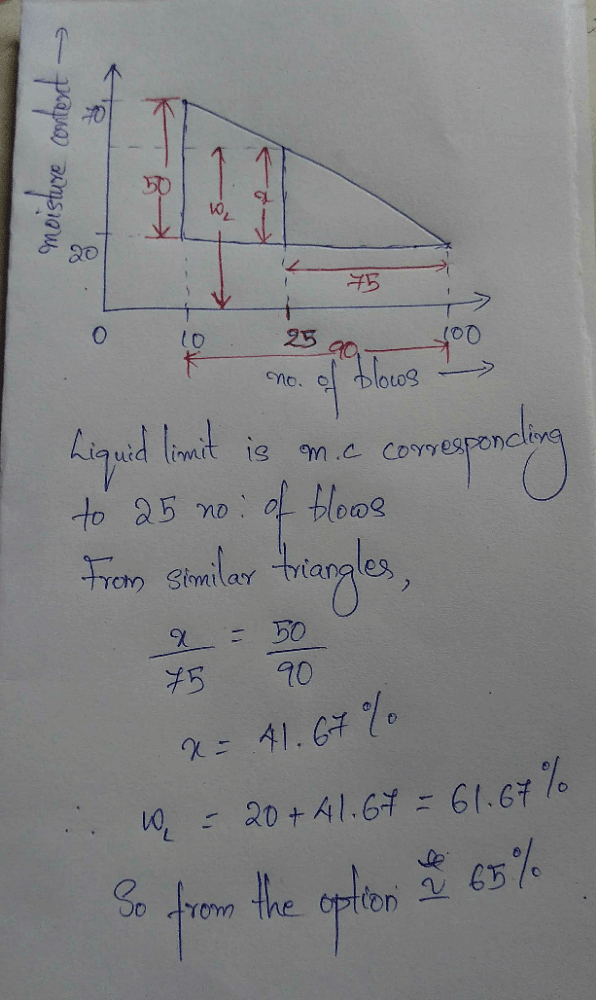 moisture content →
70
50
w_L
x
20
75
0 10 25 100
90
no. of blows →
Liquid limit is m.c corresponding
to 25 no: of blows
From similar triangles,
x/75 = 50/90
x = 41.67 %
∴ w_L = 20 + 41.67 = 61.67 %
So from the option ≃ 65 %